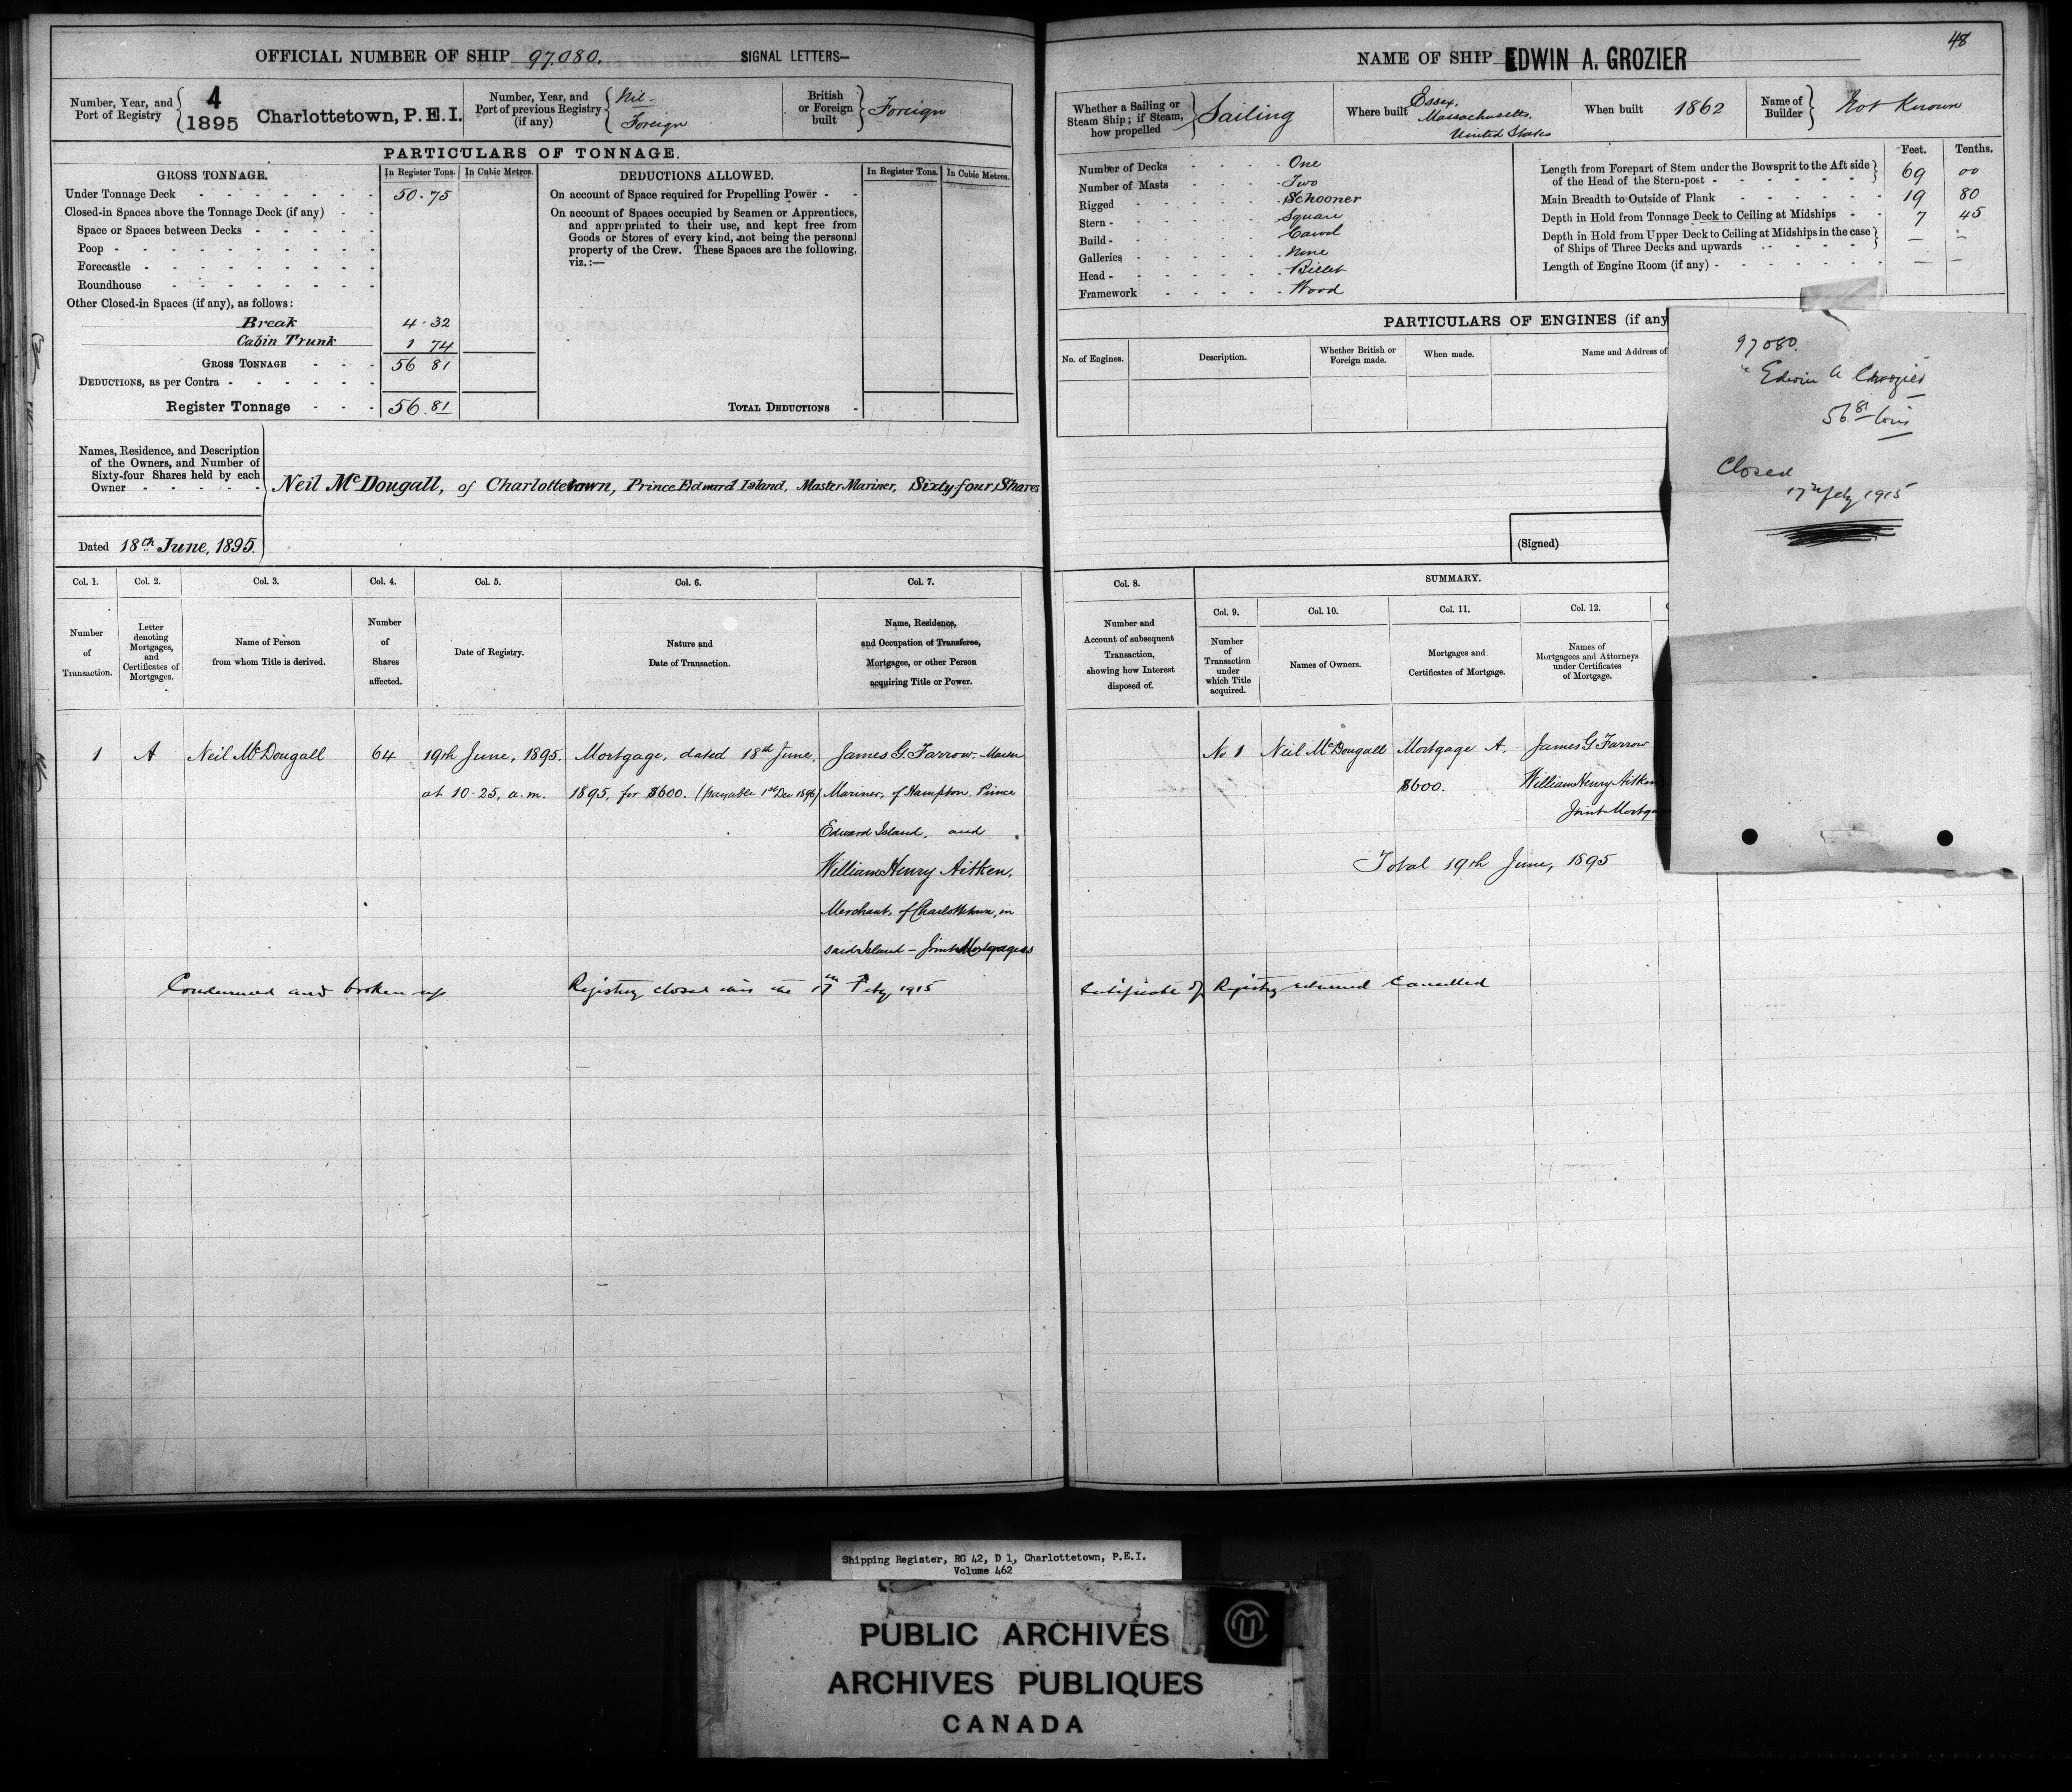 48
OFFICIAL NUMBER OF SHIP 97.080. SIGNAL LETTERS—
Number, Year, and Port of Registry
4
1895
Charlottetown, P.E.I.
Number, Year, and Port of previous Registry (if any)
Nil-
Foreign
British or Foreign built
Foreign
PARTICULARS OF TONNAGE.
GROSS TONNAGE. In Register Tons. In Cubic Metres. DEDUCTIONS ALLOWED. In Register Tons. In Cubic Metres.
Under Tonnage Deck 50.75
Closed-in Spaces above the Tonnage Deck (if any)
Space or Spaces between Decks
Poop
Forecastle
Roundhouse
Other Closed-in Spaces (if any), as follows:
Break 4.32
Cabin Trunk 1 74
GROSS TONNAGE 56 81
DEDUCTIONS, as per Contra
Register Tonnage 56.81
On account of Space required for Propelling Power
On account of Spaces occupied by Seamen or Apprentices,
and appropriated to their use, and kept free from
Goods or Stores of every kind, not being the personal
property of the Crew. These Spaces are the following,
viz.:—
TOTAL DEDUCTIONS
Names, Residence, and Description
of the Owners, and Number of
Sixty-four Shares held by each
Owner
Neil McDougall, of Charlottetown, Prince Edward Island, Master Mariner, Sixty-four Shares
Dated 18th June, 1895.
Col. 1. Col. 2. Col. 3. Col. 4. Col. 5. Col. 6. Col. 7.
Number of Transaction.
Letter denoting Mortgages, and Certificates of Mortgages.
Name of Person from whom Title is derived.
Number of Shares affected.
Date of Registry.
Nature and Date of Transaction.
Name, Residence, and Occupation of Transferee, Mortgagee, or other Person acquiring Title or Power.
1 A Neil McDougall 64 19th June, 1895. Mortgage, dated 18th June, James G. Farrow, Master
at 10-25, a.m. 1895, for $600. (payable 1st Dec 1896) Mariner, of Hampton, Prince
Edward Island, and
William Henry Aitken,
Merchant, of Charlottetown, in
said Island - Joint Mortgagees
Condemned and broken up Registry closed this the 17th Feby 1915
NAME OF SHIP EDWIN A. GROZIER
Whether a Sailing or Steam Ship; if Steam, how propelled
Sailing
Where built
Essex,
Massachusetts,
United States
When built 1862
Name of Builder
Not Known
Number of Decks One
Number of Masts Two
Rigged Schooner
Stern Square
Build Carvel
Galleries None
Head Billet
Framework Wood
Feet. Tenths.
Length from Forepart of Stem under the Bowsprit to the Aft side
of the Head of the Stern-post 69 00
Main Breadth to Outside of Plank 19 80
Depth in Hold from Tonnage Deck to Ceiling at Midships 7 45
Depth in Hold from Upper Deck to Ceiling at Midships in the case
of Ships of Three Decks and upwards — —
Length of Engine Room (if any) — —
PARTICULARS OF ENGINES (if any
No. of Engines. Description. Whether British or Foreign made. When made. Name and Address of
(Signed)
97080.
"Edwin A Crozier
56 81 tons
Closed
17th Feby 1915
Col. 8. SUMMARY.
Col. 9. Col. 10. Col. 11. Col. 12.
Number and Account of subsequent Transaction, showing how Interest disposed of.
Number of Transaction under which Title acquired.
Names of Owners.
Mortgages and Certificates of Mortgage.
Names of Mortgagees and Attorneys under Certificates of Mortgage.
No 1 Neil McDougall Mortgage A. James G Farrow
$600. William Henry Aitken
Joint Mortga
Total 19th June, 1895
Certificate of Registry returned Cancelled
Shipping Register, RG 42, D 1, Charlottetown, P.E.I.
Volume 462
PUBLIC ARCHIVES
ARCHIVES PUBLIQUES
CANADA